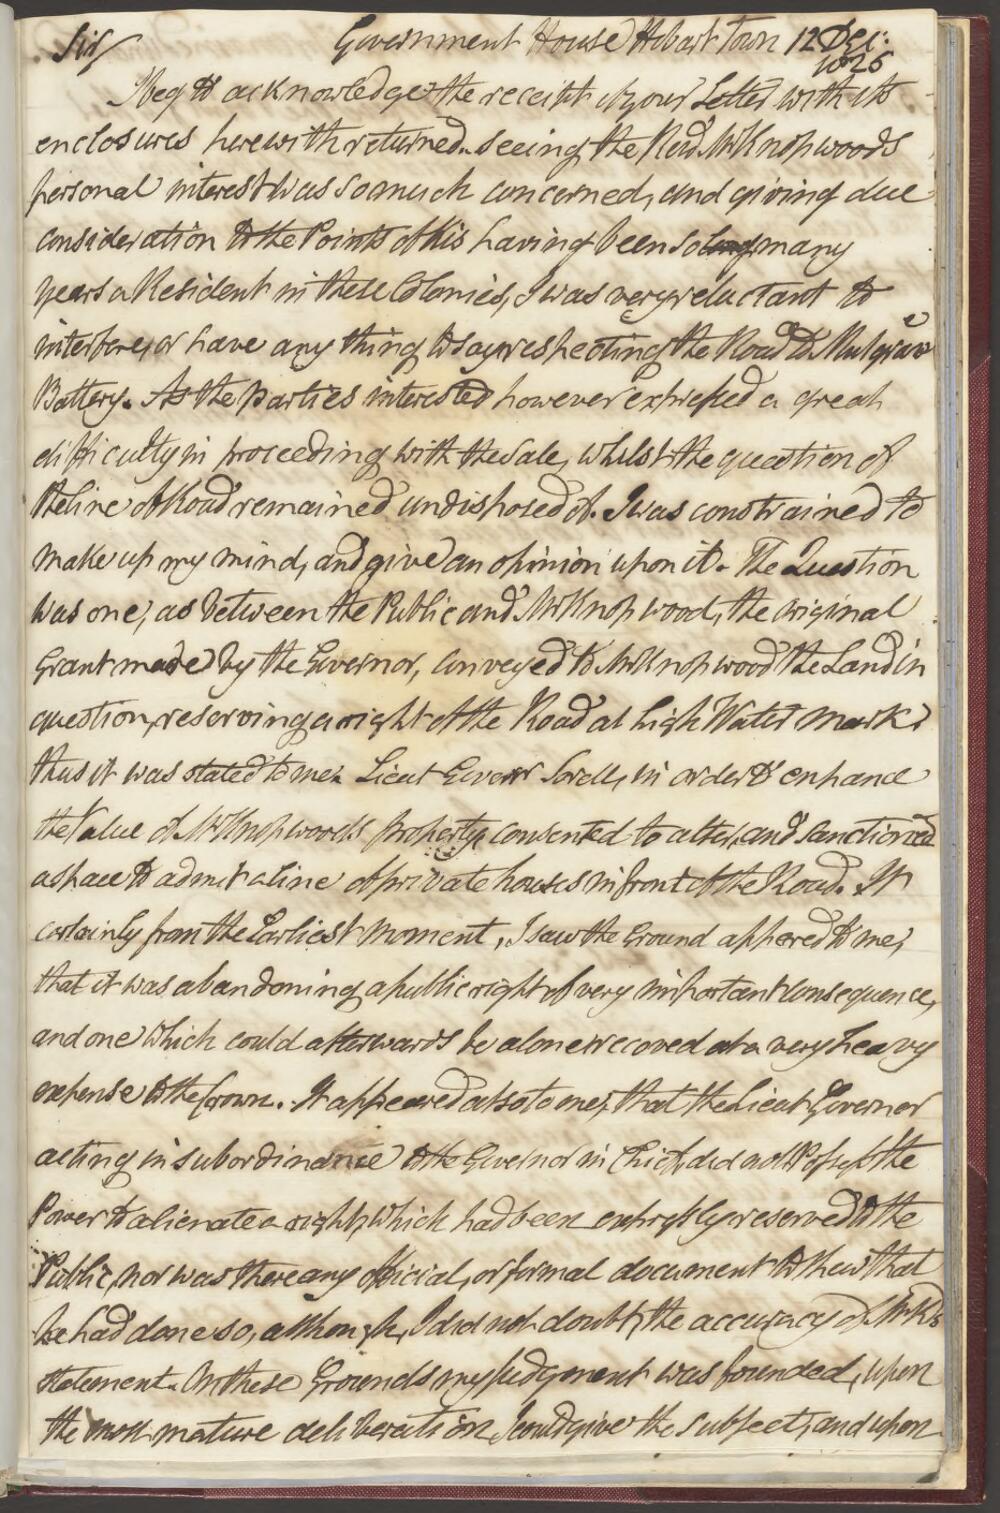 Sir Government House Hobart Town 12 Dec:
1826
I beg to acknowledge the receipt of your Letter with its
enclosures herewith returned. seeing the Revd. Mr Knopwoods
personal interest was so much concerned, and giving due
consideration to the Points of his having been so long many
years a Resident in these Colonies, I was very reluctant to
interfere, or have any thing to say respecting the Road to Mulgrave
Battery. As the parties interested however expressed a great
difficulty in proceeding with the sale, whilst the question of
the line of Road remained undisposed of. I was constrained to
make up my mind, and give an opinion upon it. The Question
was one, as between the Public and Mr Knopwood, the original
Grant made by the Governor, conveyed to Mr Knopwood the Land in
question, reserving a right of the Road at high Water mark
thus it was stated to me. Lieut Goverr Sorell, in order to enhance
the Value of Mr Knopwoods property, consented to alter, and sanctioned
a space to admit a line of private houses in front of the Road. It
certainly from the Earliest moment, I saw the Ground appeared to me,
that it was abandoning a public right of very important consequence,
and one which could afterwards be alone recoved at a very heavy
expense to the Crown. It appeared also to me, that the Lieut Governor
acting in subordinance to the Governor in Chief, did not Possess the
Power to alienate a right, which had been expressly reserved to the
Public, nor was there any official, or formal document to shew that
he had done so, although, I did not doubt, the accuracy of Mr K's
statement. On these Grounds my judgment was founded, upon
the most mature deliberation I could give the subject, and upon